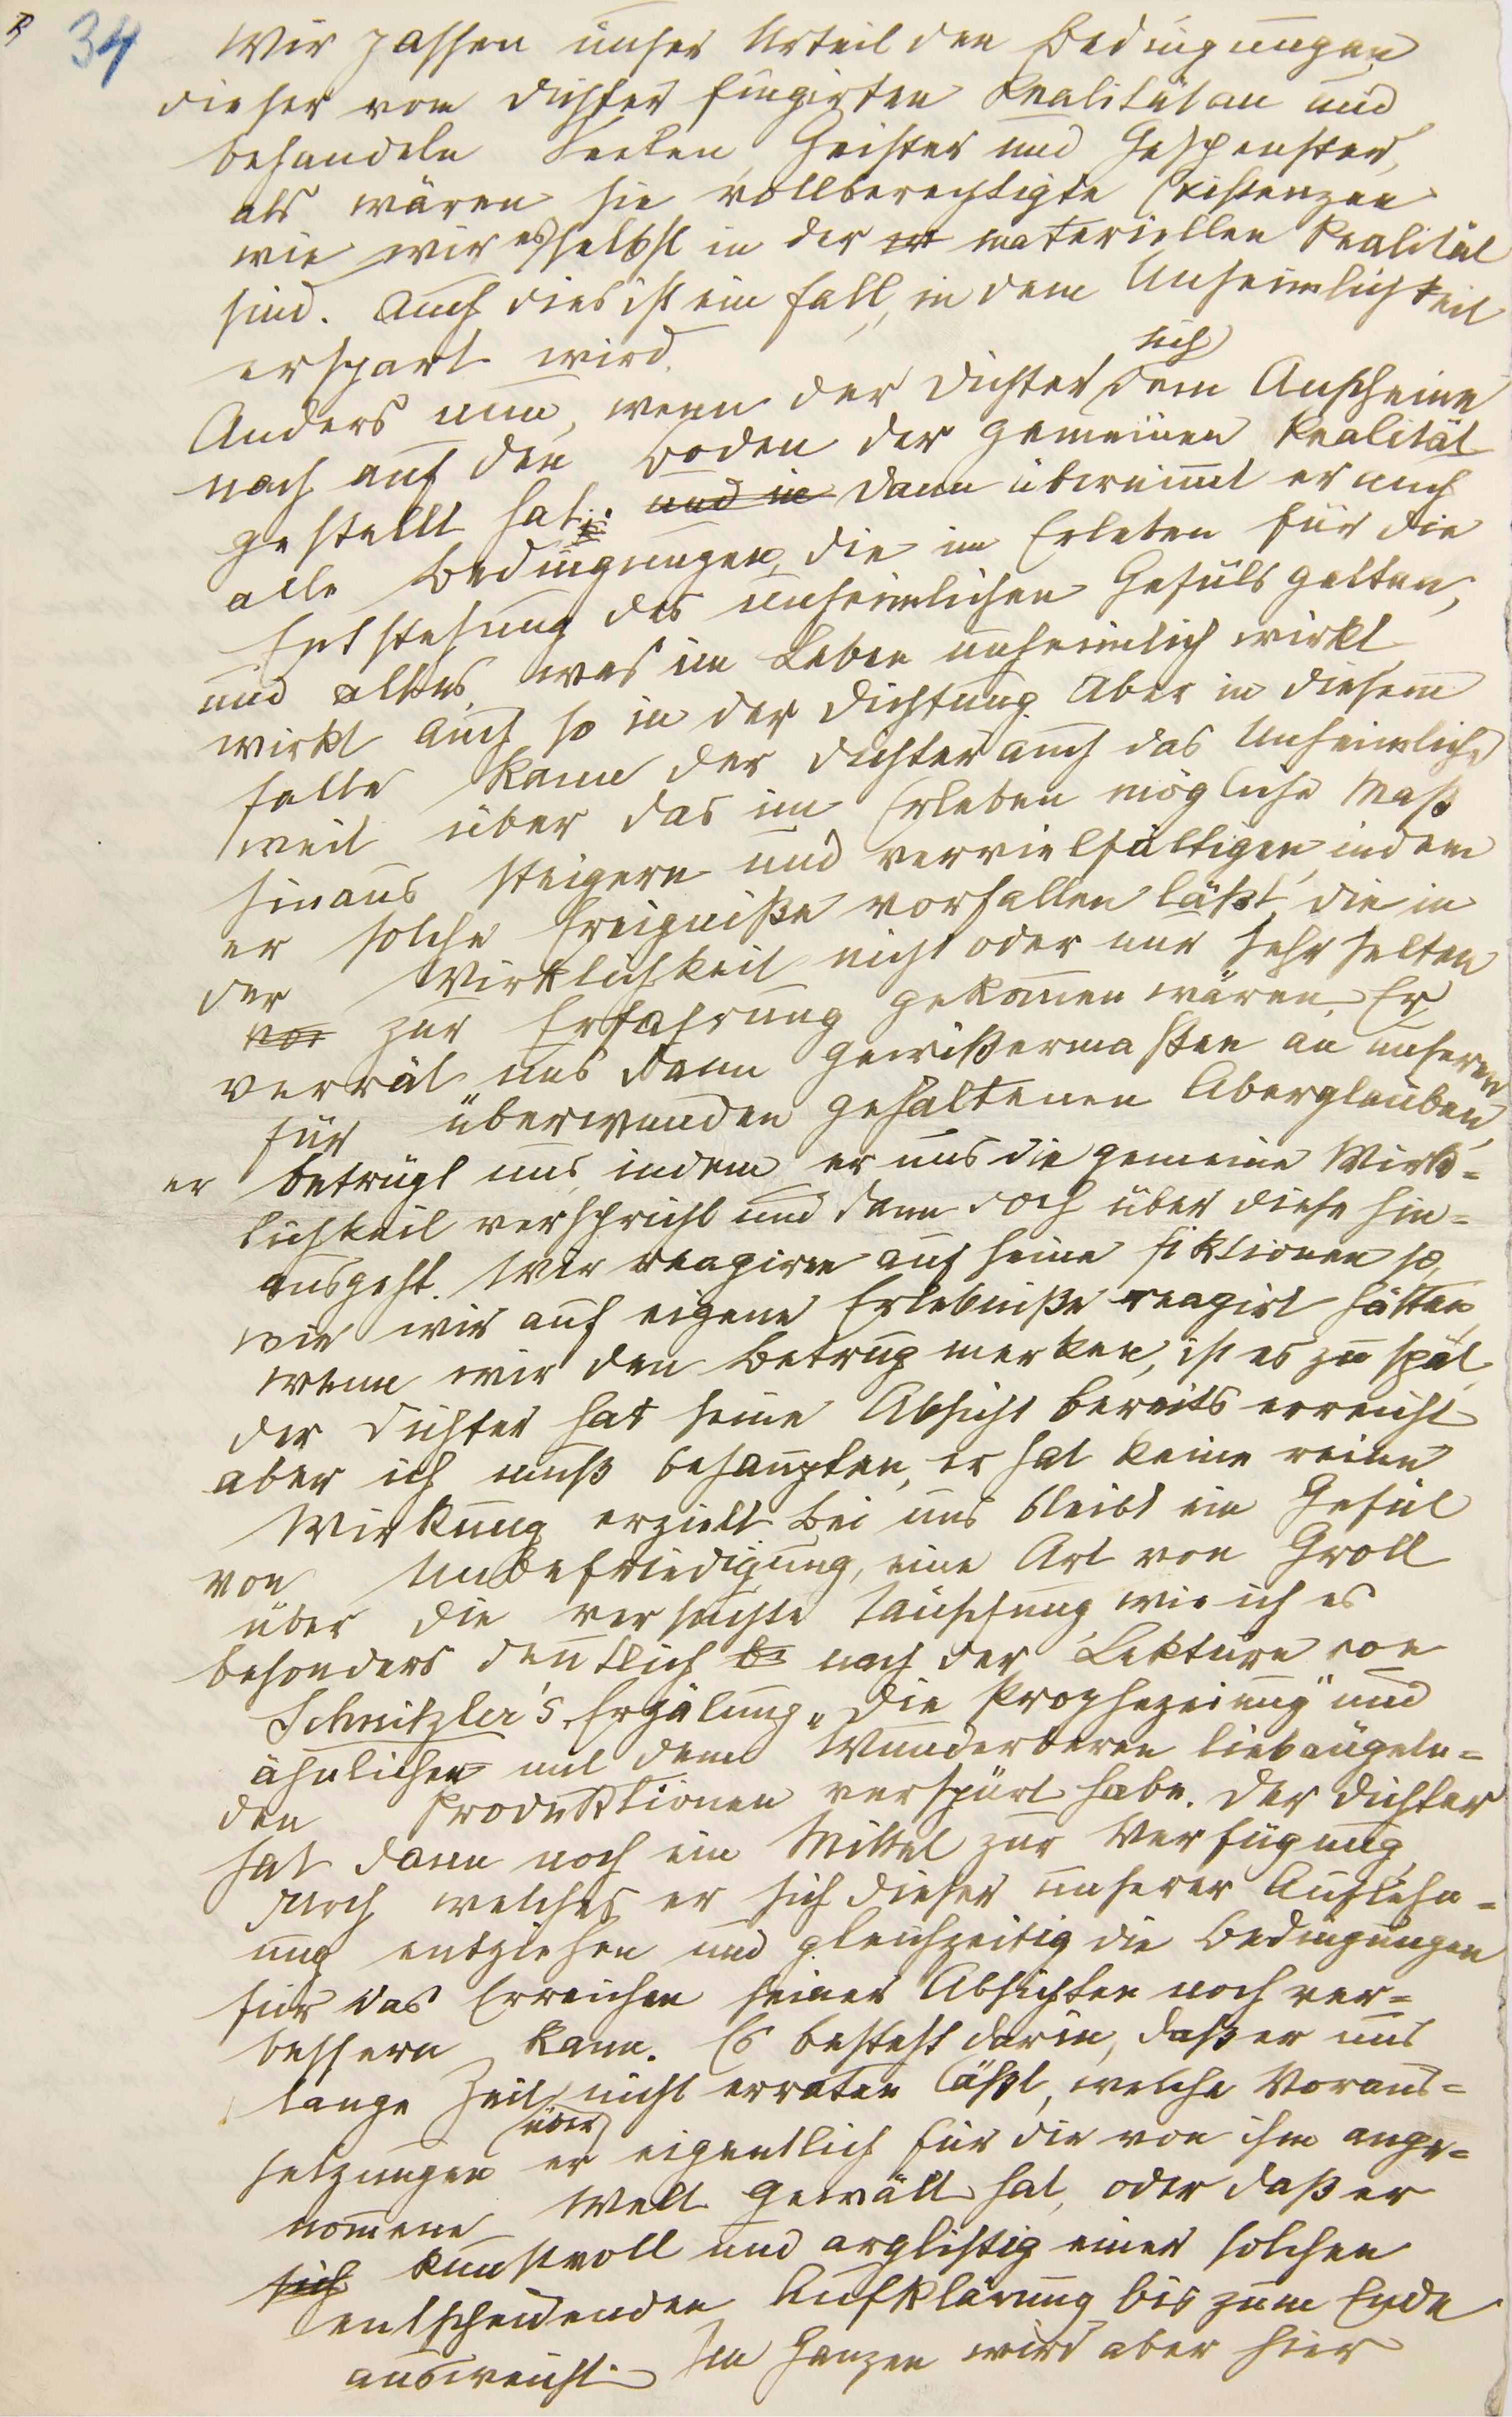 34
Wir passen unser Urteil den Bedingungen
dieser vom Dichter fingirten Realität an und
behandeln Seelen, Geister und Gespenster,
als wären sie vollberechtigte Existenzen
wie wir es selbst in der materiellen Realität
sind. Auch dies ist ein Fall, in dem Unheimlichkeit
erspart wird.
Anders nun, wenn der Dichter sich dem Anscheine
nach auf den Boden der gemeinen Realität
gestellt hat. und in Dann übernimmt er auch
alle Bedingungen, die im Erleben für die
Entstehung des unheimlichen Gefüls gelten,
und alles was im Leben unheimlich wirkt,
wirkt auch so in der Dichtung. Aber in diesem
Falle kann der Dichter auch das Unheimliche
weit über das im Erleben mögliche Maß
hinaus steigern und vervielfältigen, indem
er solche Ereigniße vorfallen läßt, die in
der Wirklichkeit nicht oder nur sehr selten
vor zur Erfahrung gekommen wären. Er
verrät uns dann gewißermaßen an unseren
für überwunden gehaltenen Aberglauben,
er betrügt uns, indem er uns die gemeine Wirk=
lichkeit verspricht und dann doch über diese hin=
ausgeht. Wir reagiren auf seine Fiktionen so,
wie wir auf eigene Erlebniße reagirt hätten,
wenn wir den Betrug merken, ist es zu spät,
der Dichter hat seine Absicht bereits erreicht
aber ich muß behaupten, er hat keine reine
Wirkung erzielt. Bei uns bleibt ein Gefül
von Unbefriedigung, eine Art von Groll
über die versuchte Täuschung wie ich es
besonders deutlich be nach der Lektüre von
Schnitzler's Erzälung „Die Prophezeiung" und
ähnlichen mit dem Wunderbaren liebäugeln=
den Produktionen verspürt habe. Der Dichter
hat dann noch ein Mittel zur Verfügung,
durch welches er sich dieser unserer Auflehn=
ung entziehen und gleichzeitig die Bedingungen
für das Erreichen seiner Absichten noch ver=
bessern kann. Es besteht darin, daß er uns
lange Zeit über nicht erraten läßt, welche Voraus=
setzungen er eigentlich für die von ihm ange=
nommene Welt gewält hat, oder daß er
sich kunstvoll und arglistig einer solchen
entscheidenden Aufklärung bis zum Ende
ausweicht. Im Ganzen wird aber hier